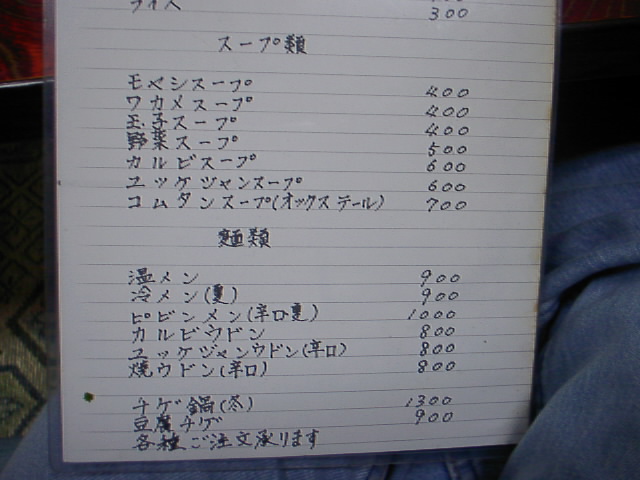 ライス 300
スープ類
モヤシスープ 400
ワカメスープ 400
玉子スープ 400
野菜スープ 500
カルビスープ 600
ユッケジャンスープ 600
コムタンスープ(オックステール) 700
麺類
温メン 900
冷メン(夏) 900
ピビンメン(辛口夏) 1000
カルビウドン 800
ユッケジャンウドン(辛口) 800
焼ウドン(辛口) 800
チゲ鍋(冬) 1300
豆腐チゲ 900
各種ご注文承ります